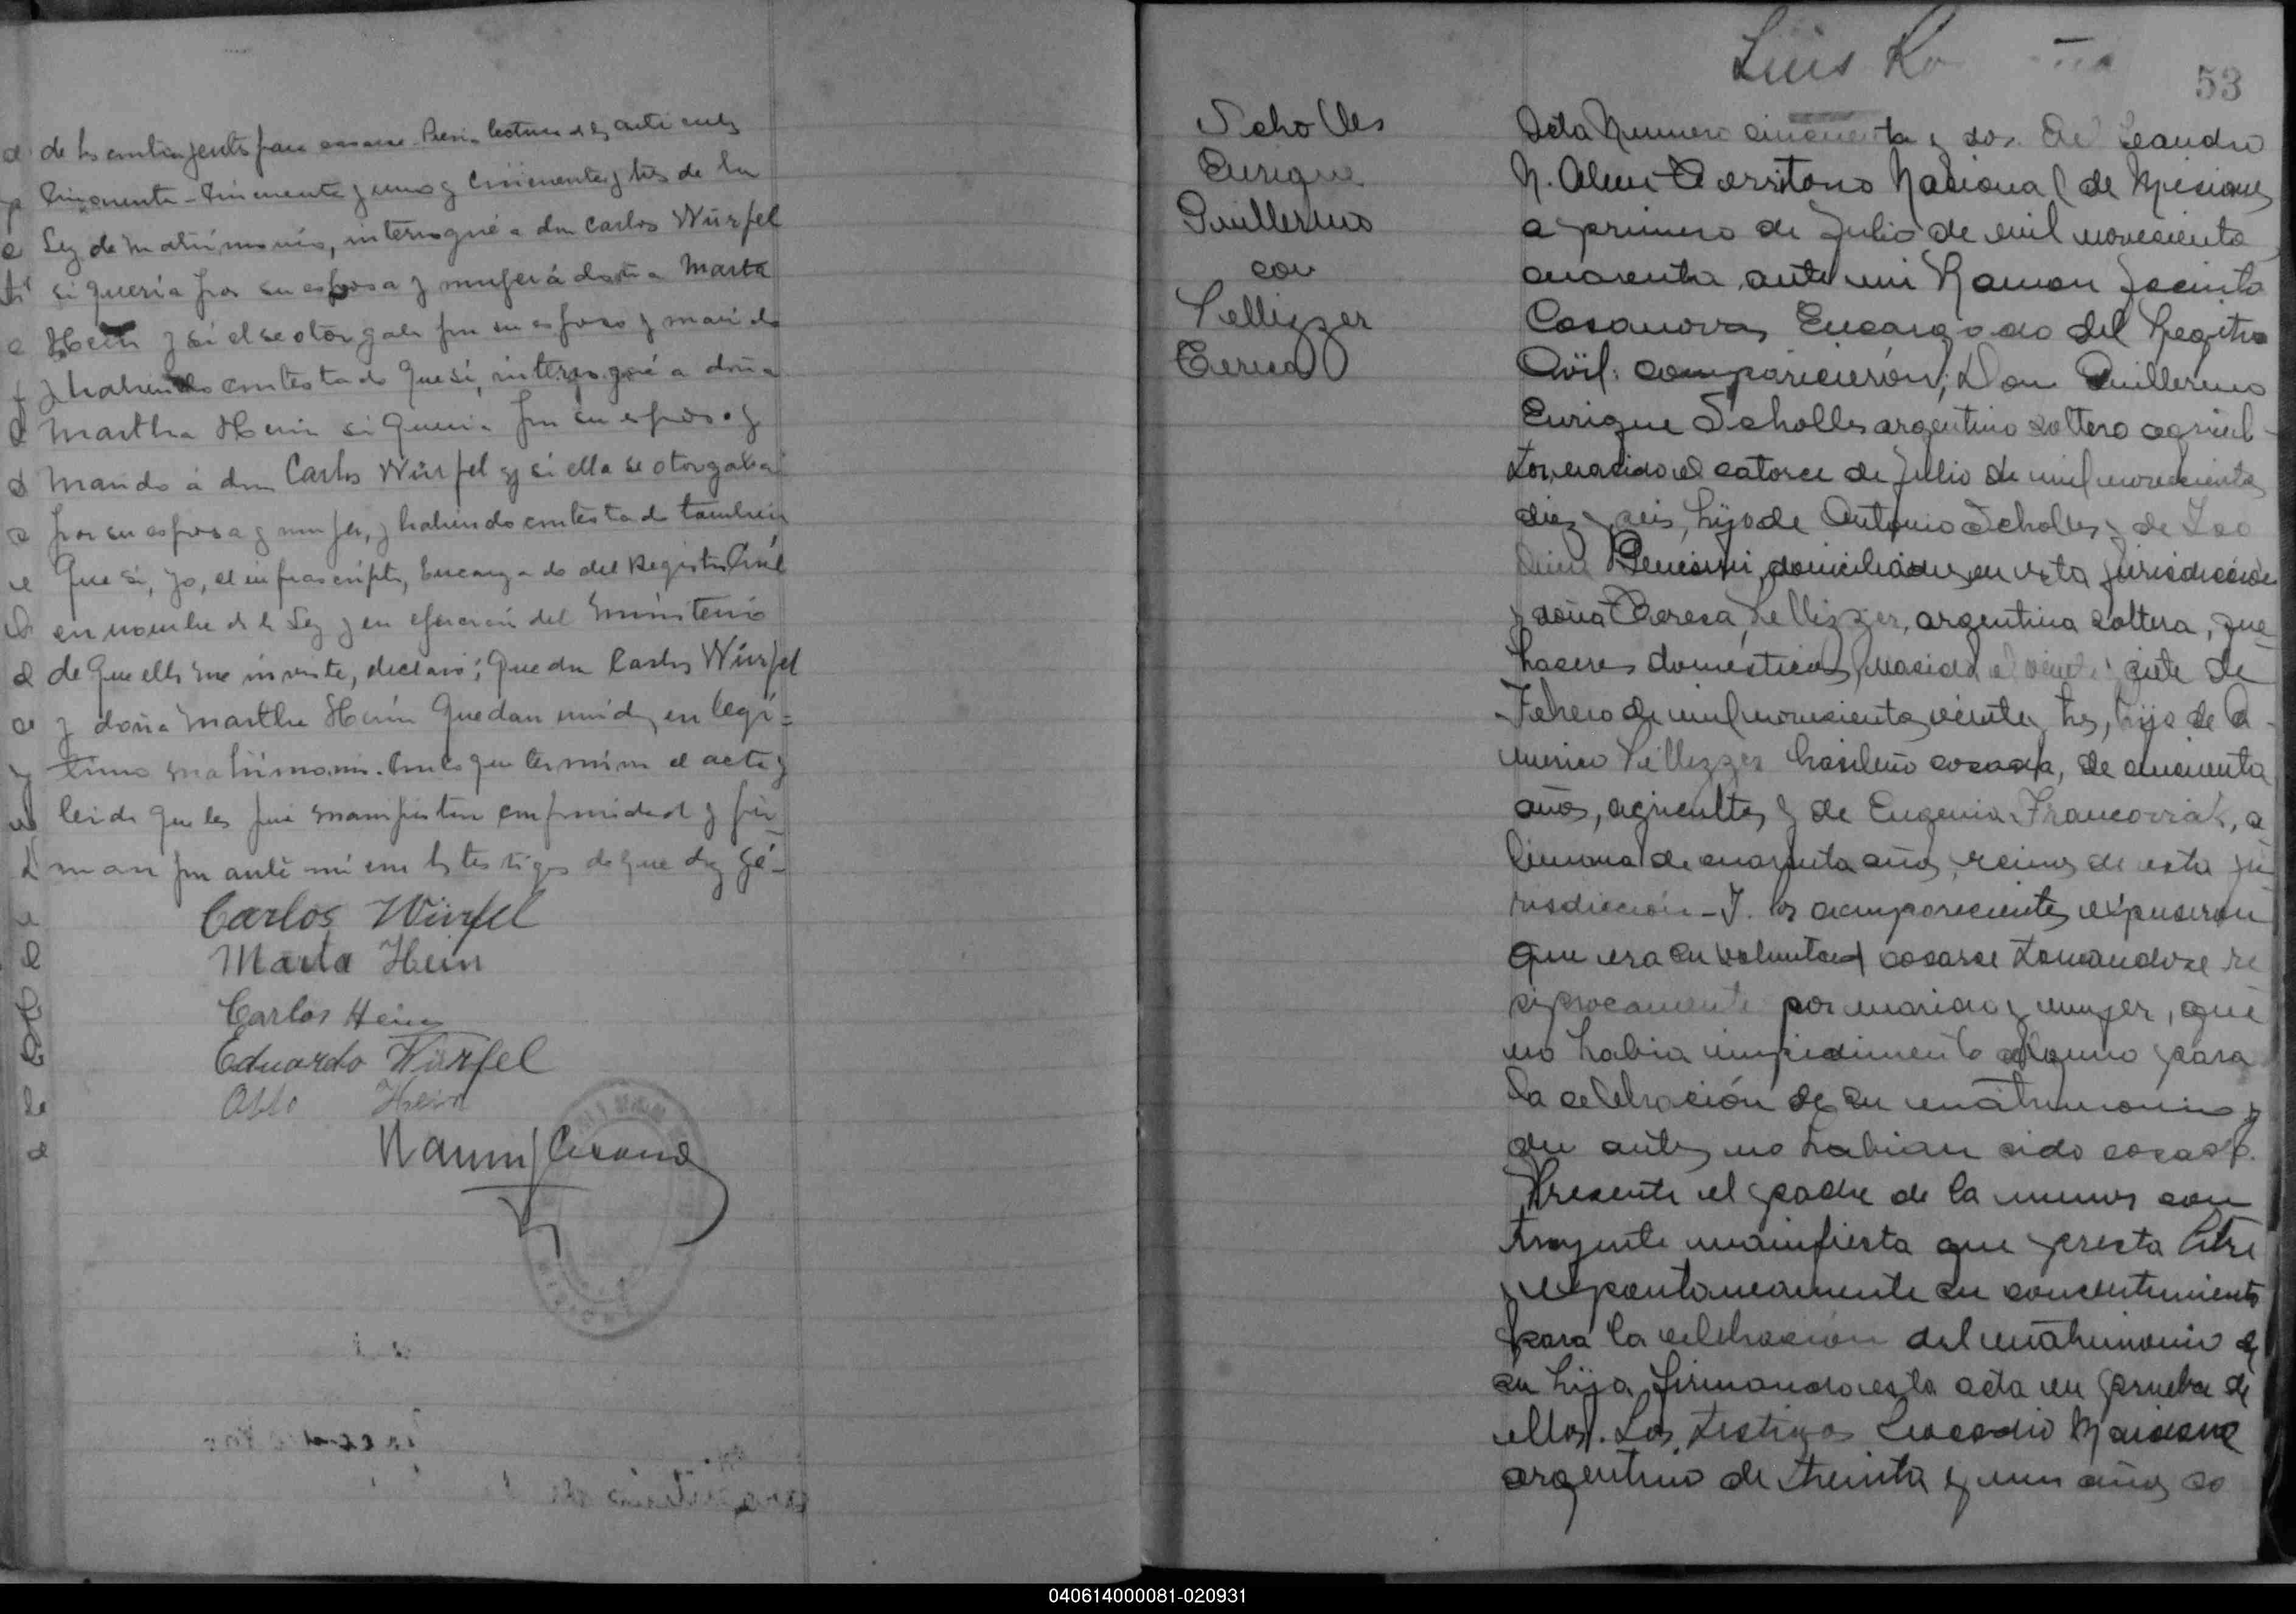 de los contrayentes para casarse. Previa lectura de los articulos
Cincuenta - Cincuenta y uno y Cincuenta y tres de la
Ley de Matrimonio, interrogué a don Carlos Würfel
si quería por su esposa y mujer á doña Marta
Hein y si el se otorgaba por su esposo y marido
y habiendo contestado que si, interrogué a doña
Martha Hein si queria por su esposo y
Marido á don Carlos Würfel y si ella se otorgaba
por su esposa y mujer, y habiendo contestado tambien
que si, yo, el infrascripto, Encargado del Registro Civil
en nombre de la Ley y en ejercicio del Ministerio
de que ella me inviste, declaro; que don Carlos Würfel
y doña Martha Hein quedan unidos en legi=
timo matrimonio. Con lo que termino el acto y
leida que les fué manifiestan conformidad y fir
man por ante mi con los testigos de que doy fé-
Carlos Würfel
Marta Hein
Carlos Hein
Eduardo Würfel
Otto Hein
Ramon J Casanova
Luis
53
Scholles
Enrique
Guillermo
con
Pellizzer
Teresa
Acta Numero cincuenta y dos. En Leandro
N. Alem Territorio Nacional de Misiones
a primero de Julio de mil novecientos
cuarenta, ante mi Ramon Jacinto
Casanova, Encargado del Registro
Civil: comparicieron; Don Guillermo
Enrique Scholles argentino soltero agricul-
tor, nacido el catorce de Julio de mil novecientos
diez y seis, hijo de Antonio Scholles y de Leo
domiciliados en esta jurisdicción
y doña Teresa Pellizzer, argentina soltera, que
haceres domésticos, nacida el veinte siete de
Febrero de mil novecientos veinte y tres, hija de A-
merico Pellizzer brasileño casado, de cincuenta
años, agricultor y de Eugenia, a
lemana de cuarenta años, vecinos de esta ju
risdicción - Y. los comparecientes expusieron
que era su voluntad casarse tomandose re
ciprocamente por marido y mujer, que
no habia impedimento alguno para
la celebración de su matrimonio y
que antes no habian sido casados.
Presente el padre de la menor con
trayente manifiesta que presta libre
y espontaneamente su consentimiento
para la celebracion del matrimonio de
su hija firmando esta acta en prueba de
ellos. Los testigos Leocadio
argentino de treinta y un años ca
040614000081-020931